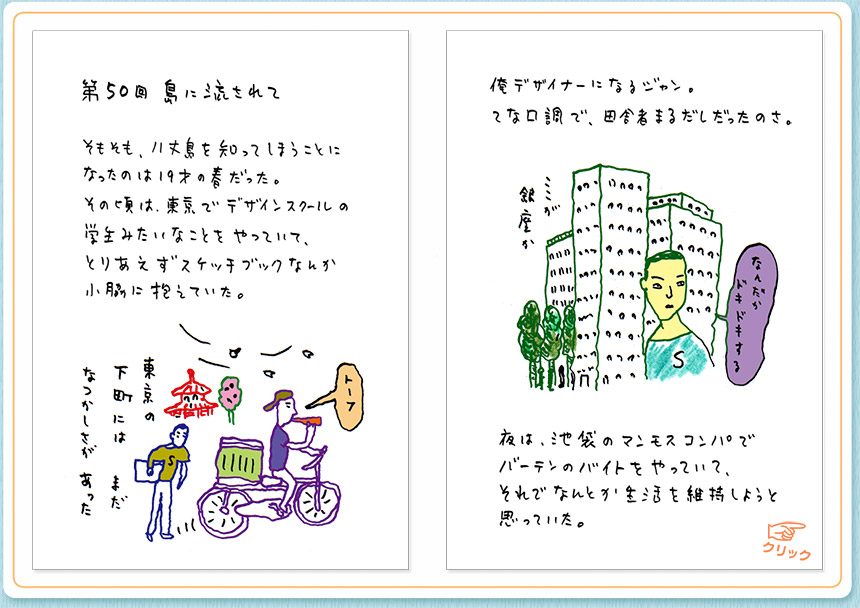 第50回 島に流されて
そもそも、八丈島を知ってしまうことに
なったのは19才の春だった。
その頃は、東京でデザインスクールの
学生みたいなことをやっていて、
とりあえずスケッチブックなんか
小脇に抱えていた。
トーフ
東京の
下町には まだ
なつかしさが あった
S
俺デザイナーになるジャン。
てな口調で、田舎者まるだしだったのさ。
ここが
銀座か
なんだか
ドキドキする
S
夜は、池袋のマンモスコンパで
バーテンのバイトをやっていて、
それでなんとか生活を維持しようと
思っていた。
クリック